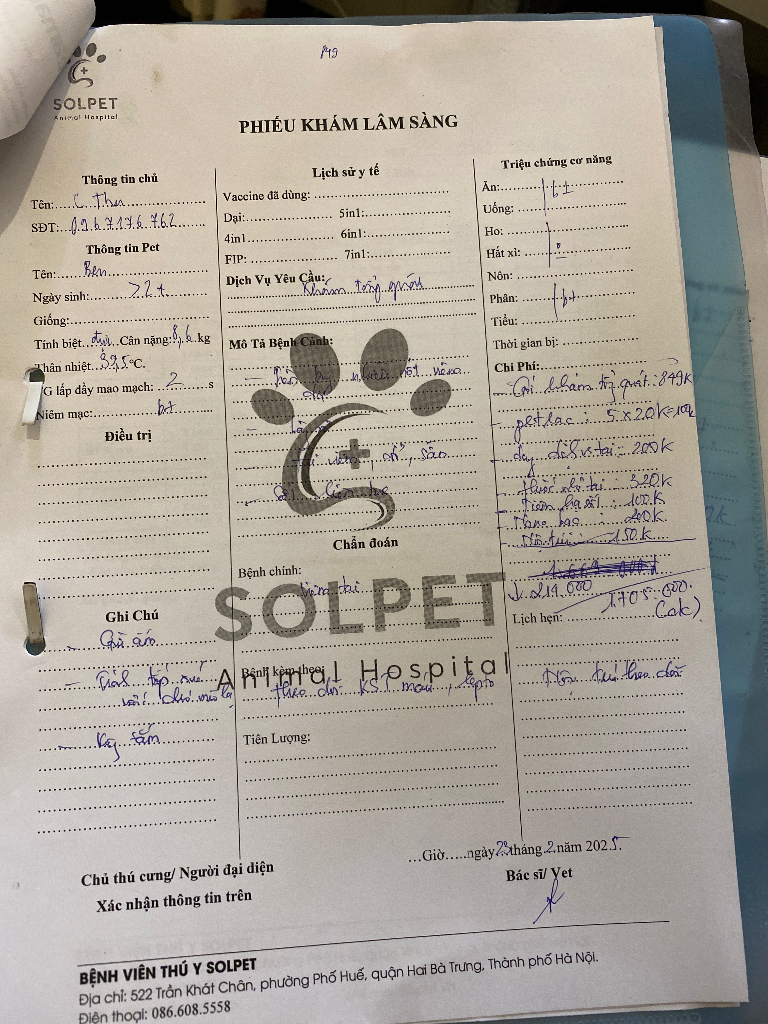 149
SOLPET
Animal Hospital
PHIẾU KHÁM LÂM SÀNG
Thông tin chủ
Tên: C Thu
SĐT: 0967176762
Thông tin Pet
Tên: Ben
Ngày sinh: >2t
Giống:
Tính biệt: đực Cân nặng: 8,6 kg
Thân nhiệt: 39,5 °C.
TG lấp đầy mao mạch: 2 s
Niêm mạc: bt
Điều trị
Ghi Chú
- Giữ ấm
với chó mèo lạ
- Ko tắm
Lịch sử y tế
Vaccine đã dùng:
Dại: 5in1:
4in1 6in1:
FIP: 7in1:
Dịch Vụ Yêu Cầu:
Khám tổng quát
Mô Tả Bệnh Cảnh:
Chẩn đoán
Bệnh chính:
Viêm tai
SOLPET
Animal Hospital
Bệnh kèm theo:
theo dõi KST máu, lepto
Tiên Lượng:
Triệu chứng cơ năng
Ăn: bt
Uống:
Ho:
Hắt xì: 0
Nôn:
Phân: bt
Tiểu:
Thời gian bị:
Chi Phí:
- Gói khám tq quát: 849K
- petlac: 5 x 20K = 100K
- dung dịch vs tai = 200K
- thuốc nhỏ tai: 320K
- Tiêm hạ sốt: 100K
200K
- Nội trú 150K
1.219.000
1.705.000
(ck)
Lịch hẹn:
Nội trú theo dõi
...Giờ.....ngày 23 tháng 2 năm 2025.
Bác sĩ/ Vet
Chủ thú cưng/ Người đại diện
Xác nhận thông tin trên
BỆNH VIỆN THÚ Y SOLPET
Địa chỉ: 522 Trần Khát Chân, phường Phố Huế, quận Hai Bà Trưng, Thành phố Hà Nội.
Điện thoại: 086.608.5558